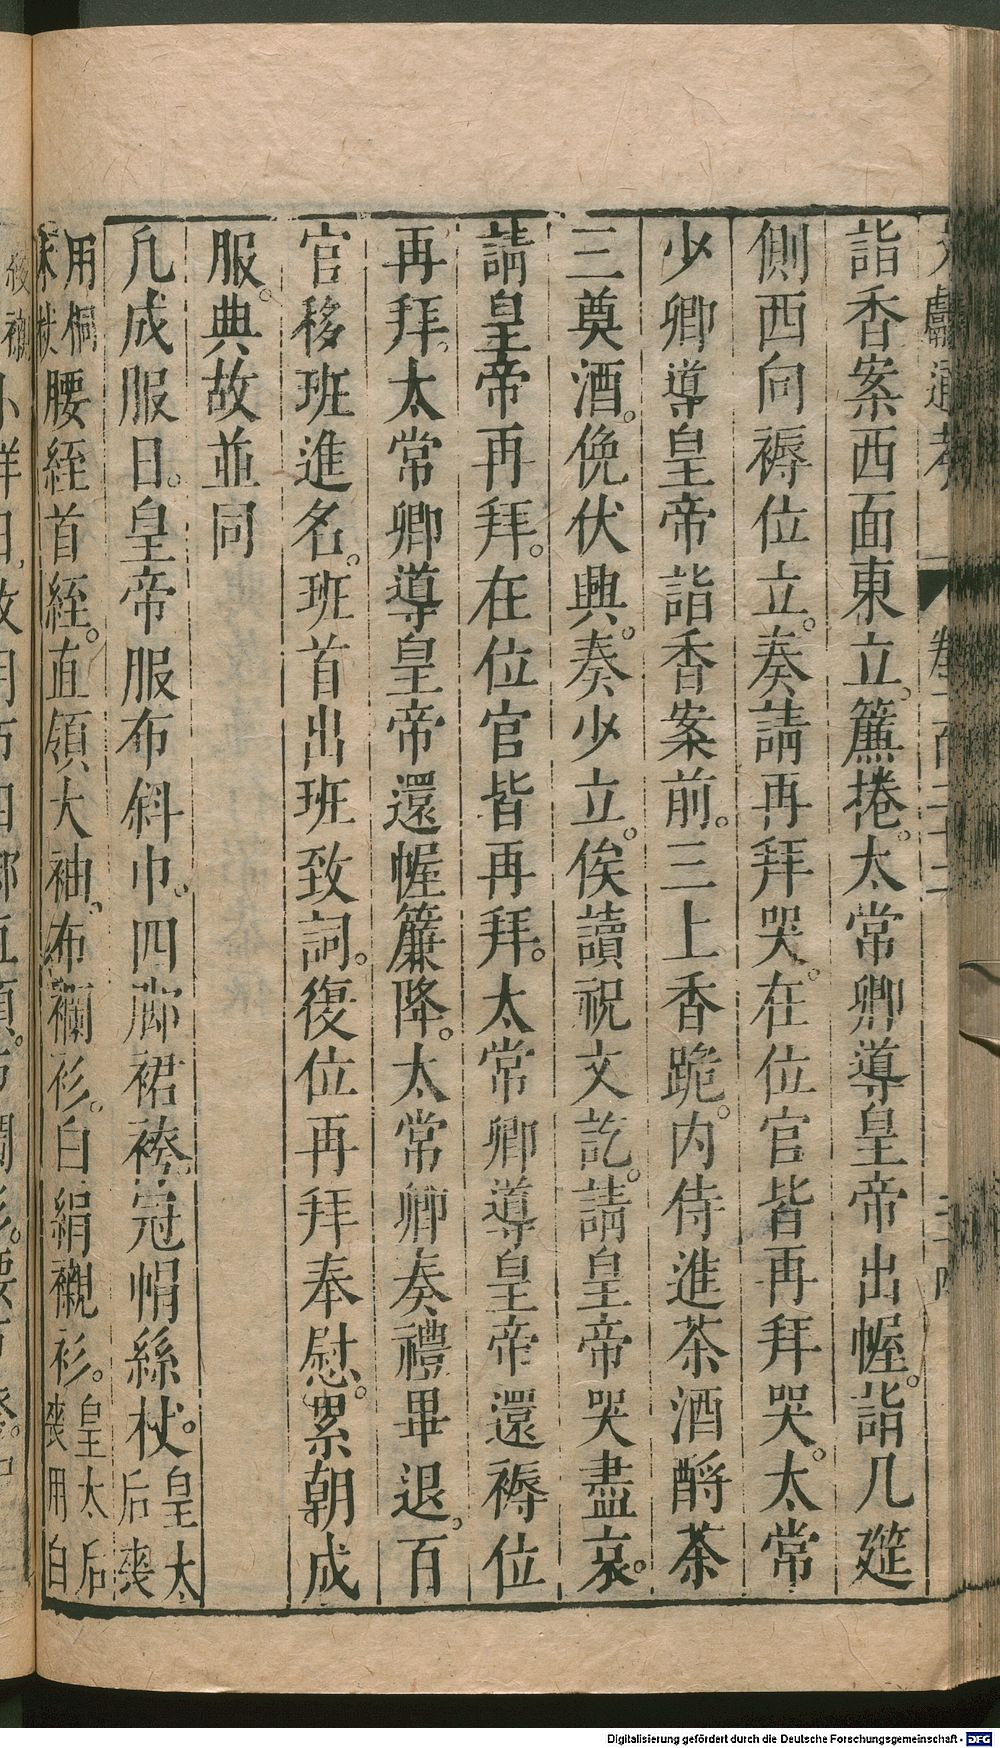 文獻通考 卷一百二十二
詣香案西面東立。簾捲。太常卿導皇帝出幄。詣几筵
側西向褥位立。奏請再拜哭。在位官皆再拜哭。太常
少卿導皇帝詣香案前。三上香跪。內侍進茶酒酹茶
三奠酒。俛伏興。奏少立。俟讀祝文訖。請皇帝哭盡哀。
請皇帝再拜。在位官皆再拜。太常卿導皇帝還褥位
再拜。太常卿導皇帝還幄簾降。太常卿奏禮畢退。百
官移班進名。班首出班致詞。復位再拜奉慰。累朝成
服。典故並同
凡成服日。皇帝服布斜巾。四脚裙袴。冠帽絲杖。皇太
后喪
用桐
腰絰首絰。直領大袖。布襴衫。白絹襯衫。皇太后
喪用白
Digitalisierung gefördert durch die Deutsche Forschungsgemeinschaft - DFG